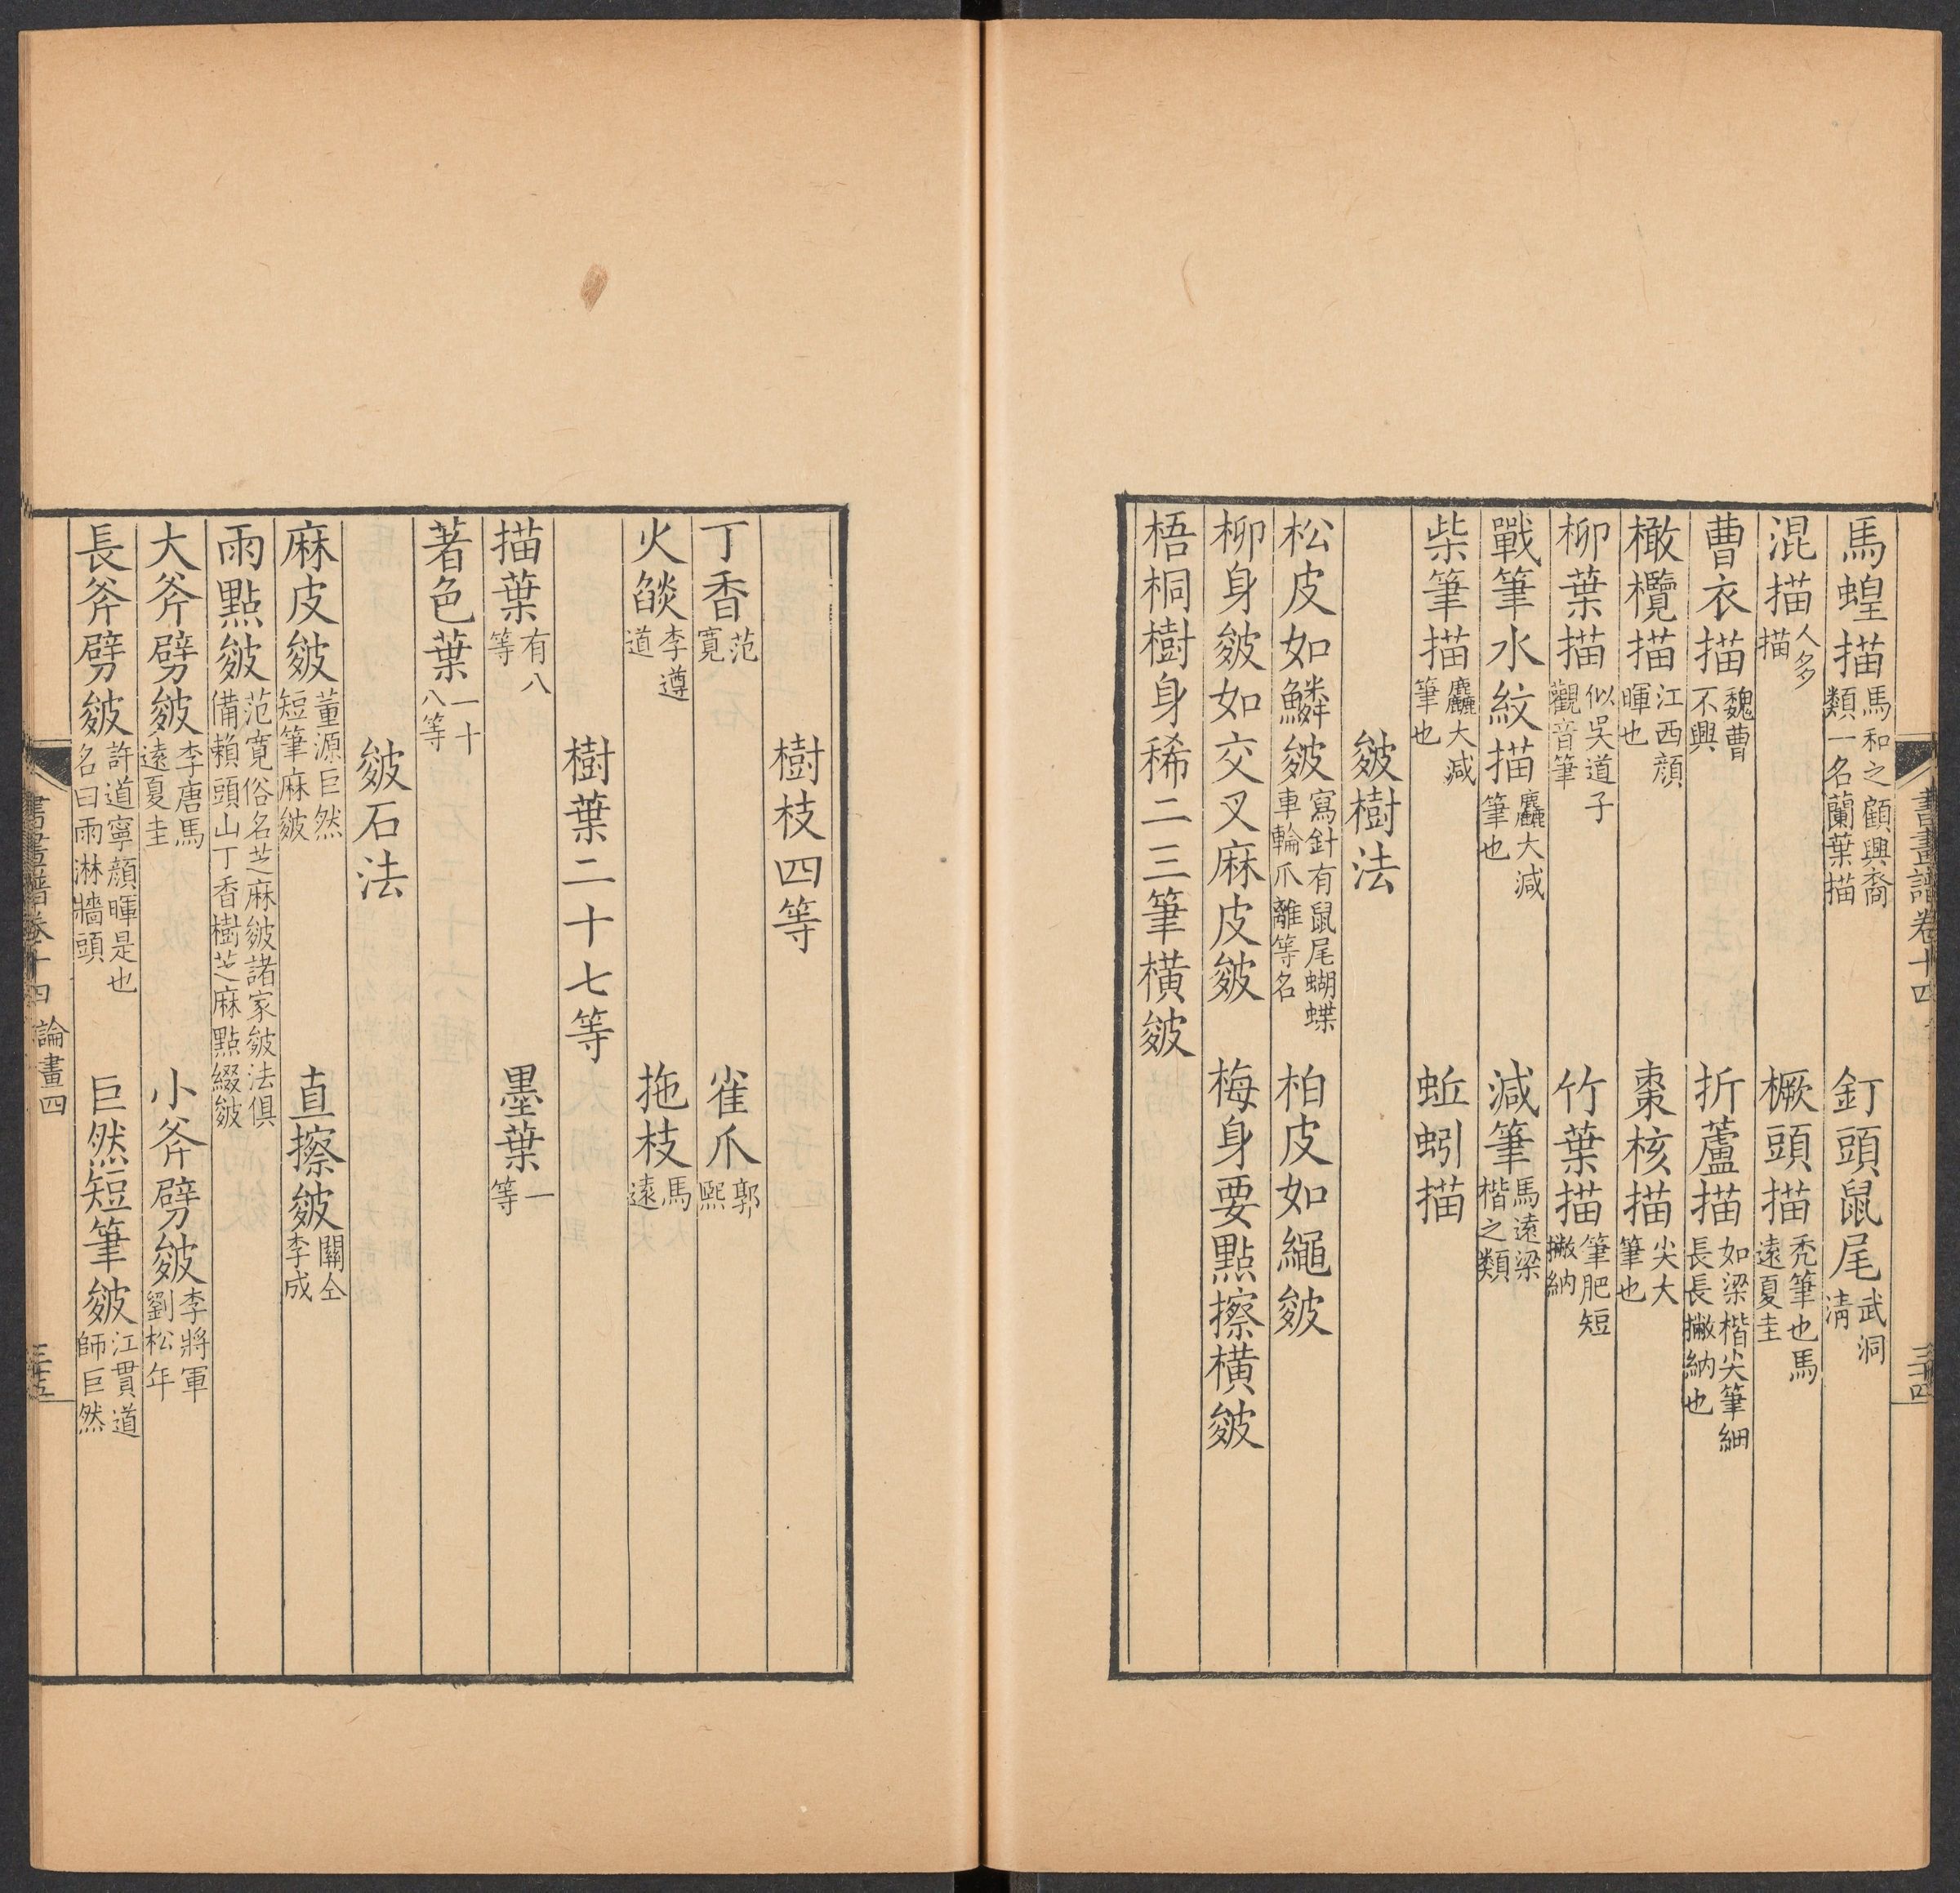 書畫譜卷十四
三十四
馬蝗描馬和之顧興裔類一名蘭葉描　釘頭鼠尾武洞清
混描人多描　橛頭描禿筆也馬遠夏圭
曹衣描魏曹不興　折蘆描如梁楷尖筆細長長撇納也
橄欖描江西顔暉也　棗核描尖大筆也
柳葉描似吳道子觀音筆　竹葉描筆肥短撇納
戰筆水紋描麤大減筆也　減筆馬遠梁楷之類
柴筆描麤大減筆也　蚯蚓描
皴樹法
松皮如鱗皴寫針有鼠尾蝴蝶車輪爪離等名　柏皮如繩皴
柳身皴如交叉麻皮皴　梅身要點擦橫皴
梧桐樹身稀二三筆橫皴
樹枝四等
丁香范寬　雀爪郭熙
火燄李遵道　拖枝馬遠
樹葉二十七等
描葉有八等　墨葉一等
著色葉一十八等
皴石法
麻皮皴董源巨然短筆麻皴　直擦皴關仝李成
雨點皴范寬俗名芝麻皴諸家皴法俱備賴頭山丁香樹芝麻點綴皴
大斧劈皴李唐馬遠夏圭　小斧劈皴李將軍劉松年
長斧劈皴許道寧顔暉是也名曰雨淋牆頭　巨然短筆皴江貫道師巨然
書畫譜卷十四　論畫四
三十五